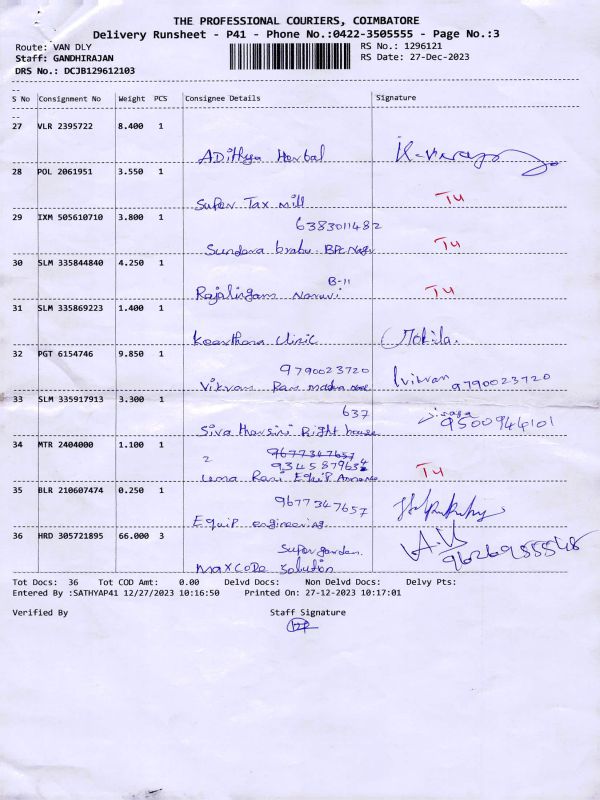 THE PROFESSIONAL COURIERS, COIMBATORE
Delivery Runsheet - P41 - Phone No.:0422-3505555 - Page No.:3
Route: VAN DLY
RS No.: 1296121
Staff: GANDHIRAJAN
RS Date: 27-Dec-2023
DRS No.: DCJB129612103
S No Consignment No Weight PCS Consignee Details Signature
27 VLR 2395722 8.400 1
Adithya Herbal
28 POL 2061951 3.550 1
Super Tax mill TU
29 IXM 505610710 3.800 1
6383011482
Sundara brabu. TU
30 SLM 335844840 4.250 1
B-11
Rajalingam TU
31 SLM 335869223 1.400 1
Keerthana Clinic Mokila.
32 PGT 6154746 9.850 1
9790023720
Vikram Vikram 9790023720
33 SLM 335917913 3.300 1
637
Siva Right house 9500944101
34 MTR 2404000 1.100 1
2 9677347657
TU
Uma Rani Equip
35 BLR 210607474 0.250 1
9677347657
Equip engineering
36 HRD 305721895 66.000 3
Super garden.
maxcode solution
Tot Docs: 36 Tot COD Amt: 0.00 Delvd Docs: Non Delvd Docs: Delvy Pts:
Entered By :SATHYAP41 12/27/2023 10:16:50 Printed On: 27-12-2023 10:17:01
Verified By Staff Signature